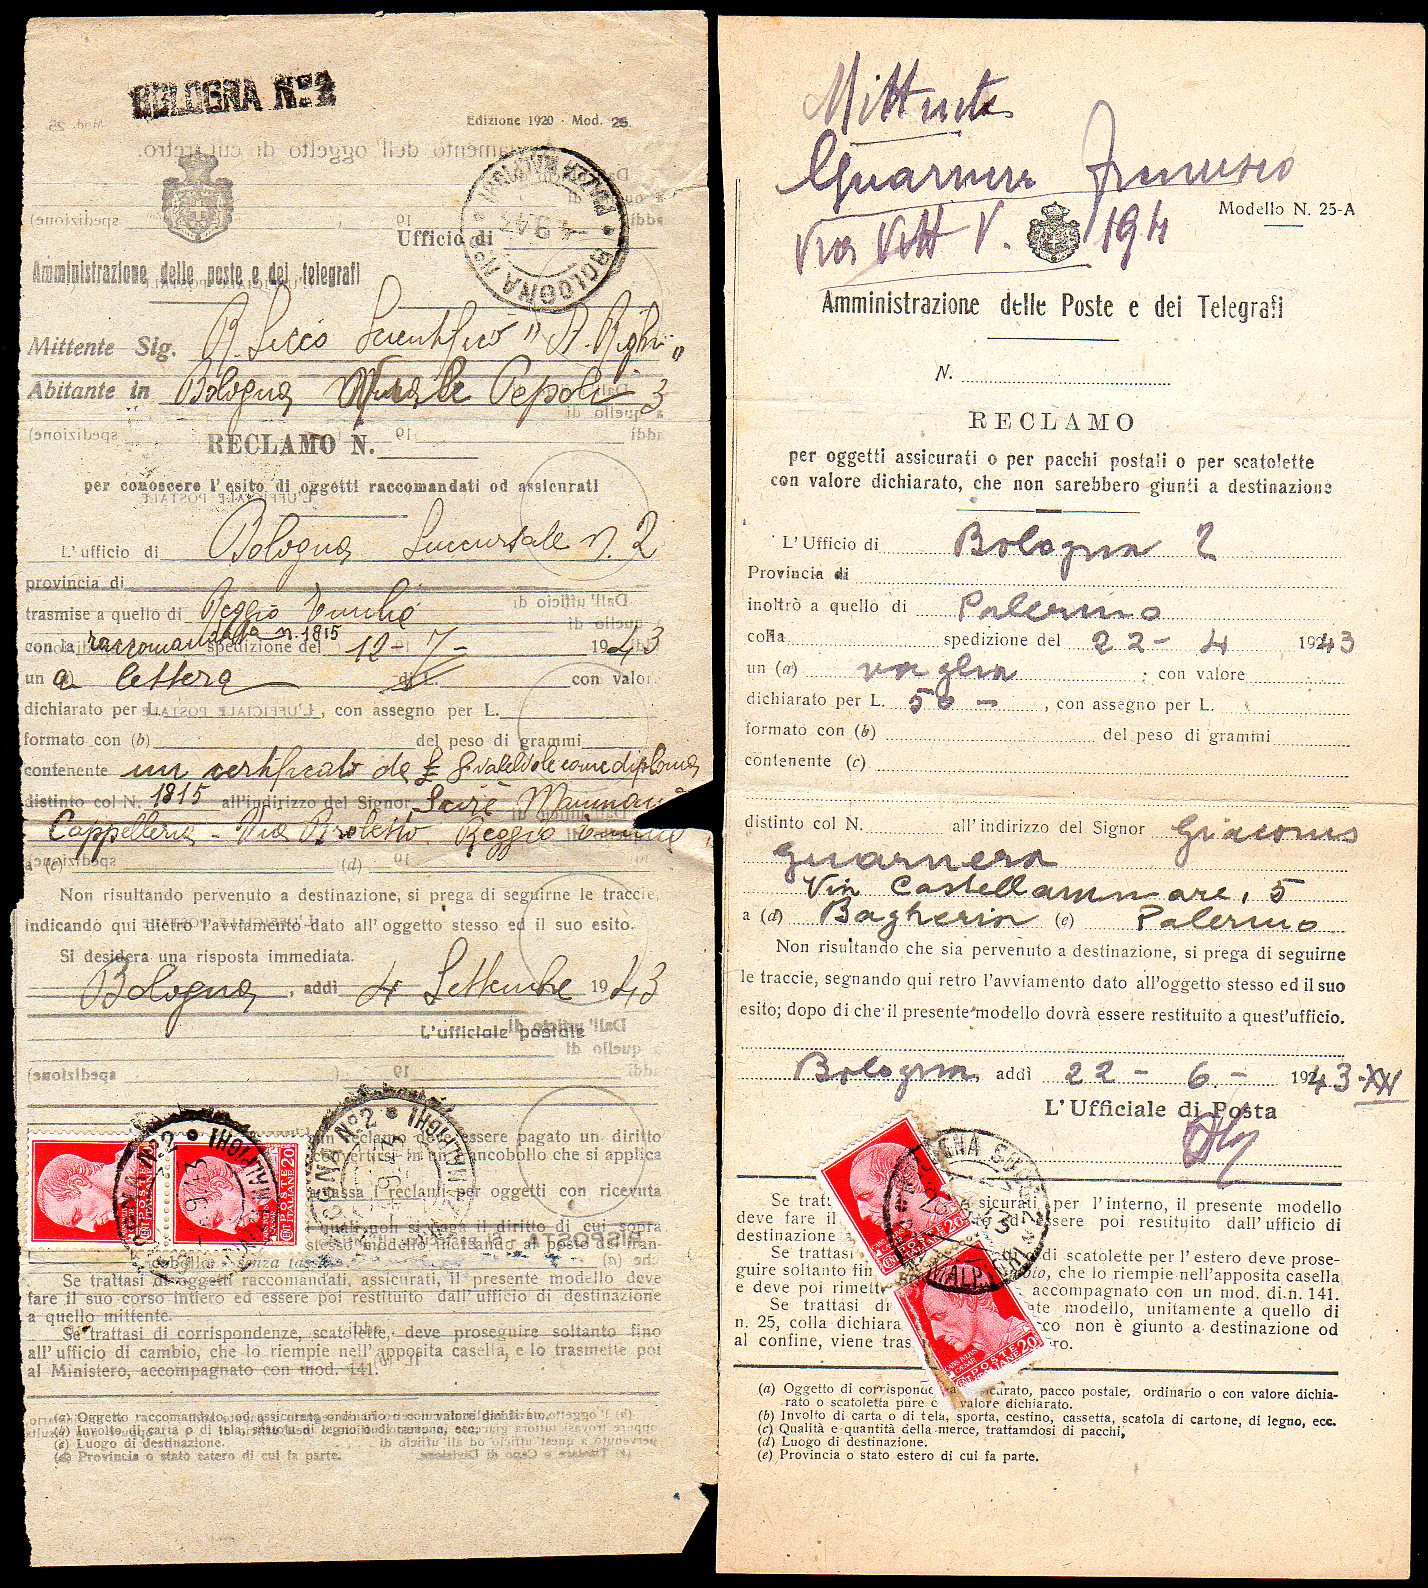 BOLOGNA N° 2
Edizione 1920 - Mod. 25
Ufficio di
BOLOGNA N° 2
Amministrazione delle poste e dei telegrafi
Mittente Sig. R. Liceo Scientifico "A. Righi"
Abitante in Bologna Viale Pepoli 3
RECLAMO N.
per conoscere l'esito di oggetti raccomandati od assicurati
L'ufficio di Bologna Succursale n. 2
provincia di
trasmise a quello di Reggio Emilia
con la raccomandata n. 1815 spedizione del 12 - 7 - 1943
un a lettera di L. con valor
dichiarato per L. , con assegno per L.
formato con (b) del peso di grammi
contenente un certificato de valevole come diploma
distinto col N. 1815 all'indirizzo del Signor
Cappelleria - Via Broletto Reggio Emilia
a (c) (d)
Non risultando pervenuto a destinazione, si prega di seguirne le traccie,
indicando qui dietro l'avviamento dato all'oggetto stesso ed il suo esito.
Si desidera una risposta immediata.
Bologna, addì 4 Settembre 1943
L'ufficiale postale
un reclamo deve essere pagato un diritto
convertirsi in un francobollo che si applica
tassa i reclami per oggetti con ricevuta
quali non si paga il diritto di cui sopra
stesso modello incisando al posto del fran-
cobollo: senza tassa
Se trattasi di oggetti raccomandati, assicurati, il presente modello deve
fare il suo corso intiero ed essere poi restituito dall'ufficio di destinazione
a quello mittente.
Se trattasi di corrispondenze, scatolette, deve proseguire soltanto fino
all'ufficio di cambio, che lo riempie nell'apposita casella, e lo trasmette poi
al Ministero, accompagnato con mod. 141.
(a) Oggetto raccomandato, od assicurato ordinario o con valore dichiarato.
(b) Involto di carta o di tela, scatola di legno o di cartone, ecc.
(c) Luogo di destinazione.
(d) Provincia o stato estero di cui fa parte.
POSTE ITALIANE 20
POSTE ITALIANE 20
Mittente
Guarnera Francesco
Via Vitt V. 194
Modello N. 25-A
Amministrazione delle Poste e dei Telegrafi
N.
RECLAMO
per oggetti assicurati o per pacchi postali o per scatolette
con valore dichiarato, che non sarebbero giunti a destinazione
L'Ufficio di Bologna 2
Provincia di
inoltrò a quello di Palermo
colla spedizione del 22 - 4 1943
un (a) vaglia ; con valore
dichiarato per L. 50 - , con assegno per L.
formato con (b) del peso di grammi
contenente (c)
distinto col N. all'indirizzo del Signor Giacomo
Guarnera
Via Castellammare, 5
a (d) Bagheria (e) Palermo
Non risultando che sia pervenuto a destinazione, si prega di seguirne
le traccie, segnando qui retro l'avviamento dato all'oggetto stesso ed il suo
esito; dopo di che il presente modello dovrà essere restituito a quest'ufficio.
Bologna, addì 22 - 6 - 1943-XXI
L'Ufficiale di Posta
Se tratt sicurati per l'interno, il presente modello
deve fare il ed essere poi restituito dall'ufficio di
destinazione
Se trattasi di scatolette per l'estero deve prose-
guire soltanto fin che lo riempie nell'apposita casella
e deve poi rimette accompagnato con un mod. di n. 141.
Se trattasi di te modello, unitamente a quello di
n. 25, colla dichiara cco non è giunto a destinazione od
al confine, viene tras ro.
POSTE ITALIANE 20
POSTE ITALIANE 20
(a) Oggetto di corrisponde assicurato, pacco postale, ordinario o con valore dichia-
rato o scatoletta pure c valore dichiarato.
(b) Involto di carta o di tela, sporta, cestino, cassetta, scatola di cartone, di legno, ecc.
(c) Qualità e quantità della merce, trattandosi di pacchi,
(d) Luogo di destinazione.
(e) Provincia o stato estero di cui fa parte.